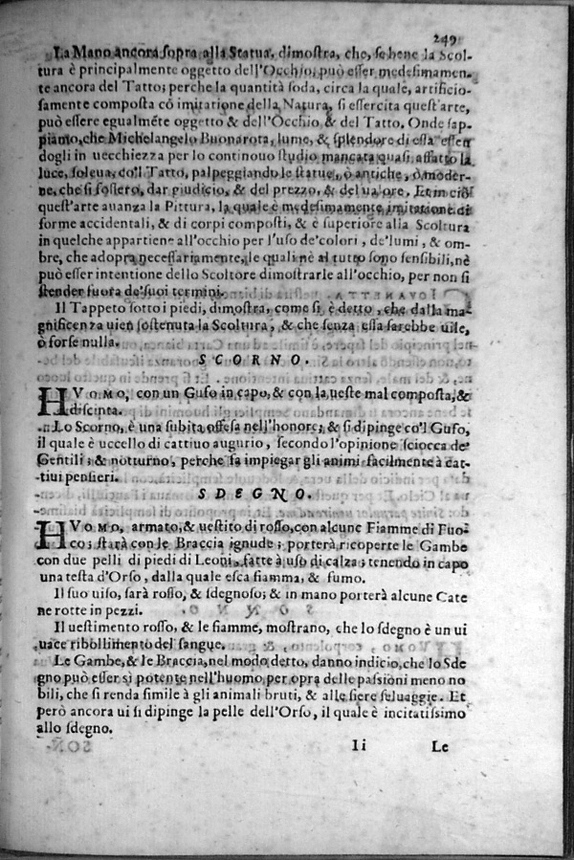 249
La Mano ancora sopra alla Statua, dimostra, che, se bene la Scol-
tura è principalmente oggetto dell'Occhio, può esser medesimamen-
te ancora del Tatto; perche la quantità soda, circa la quale, artificio-
samente composta cō imitatione della Natura, si essercita quest'arte,
può essere egualmēte oggetto & dell'Occhio & del Tatto. Onde sap-
piamo, che Michelangelo Buonarota, lume, & splendore di essa essen
dogli in uecchiezza per lo continouo studio mancata quasi affatto la
luce, soleua, co'l Tatto, palpeggiando le statue, ò antiche, ò moder-
ne, che si fossero, dar giudicio, & del prezzo, & del valore. Et in ciò
quest'arte auanza la Pittura, la quale è medesimamente imitatione di
forme accidentali, & di corpi composti, & è superiore alla Scoltura
in quelche appartiene all'occhio per l'uso de'colori, de'lumi, & om-
bre, che adopra necessariamente, le quali nè al tutto sono sensibili, nè
può esser intentione dello Scoltore dimostrarle all'occhio, per non si
stender fuora de'suoi termini.
Il Tappeto sotto i piedi, dimostra, come si è detto, che dalla ma-
gnificenza uien sostenuta la Scoltura, & che senza essa sarebbe uile,
ò forse nulla.
SCORNO.
HVOMO, con un Gufo in capo, & con la ueste mal composta, &
discinta.
Lo Scorno, è una subita offesa nell'honore; & si dipinge co'l Gufo,
il quale è uccello di cattiuo augurio, secondo l'opinione sciocca de'
Gentili; & notturno, perche fa impiegar gli animi facilmente à cat-
tiui pensieri.
SDEGNO.
HVOMO, armato, & uestito di rosso, con alcune Fiamme di Fuo-
co; starà con le Braccia ignude; porterà ricoperte le Gambe
con due pelli di piedi di Leoni, fatte à uso di calza; tenendo in capo
una testa d'Orso, dalla quale esca fiamma, & fumo.
Il suo uiso, sarà rosso, & sdegnoso; & in mano porterà alcune Cate
ne rotte in pezzi.
Il uestimento rosso, & le fiamme, mostrano, che lo sdegno è un ui
uace ribollimento del sangue.
Le Gambe, & le Braccia, nel modo detto, danno indicio, che lo Sde
gno può esser sì potente nell'huomo, per opra delle passioni meno no
bili, che si renda simile à gli animali bruti, & alle fiere seluaggie. Et
però ancora ui si dipinge la pelle dell'Orso, il quale è incitatissimo
allo sdegno.
Ii Le